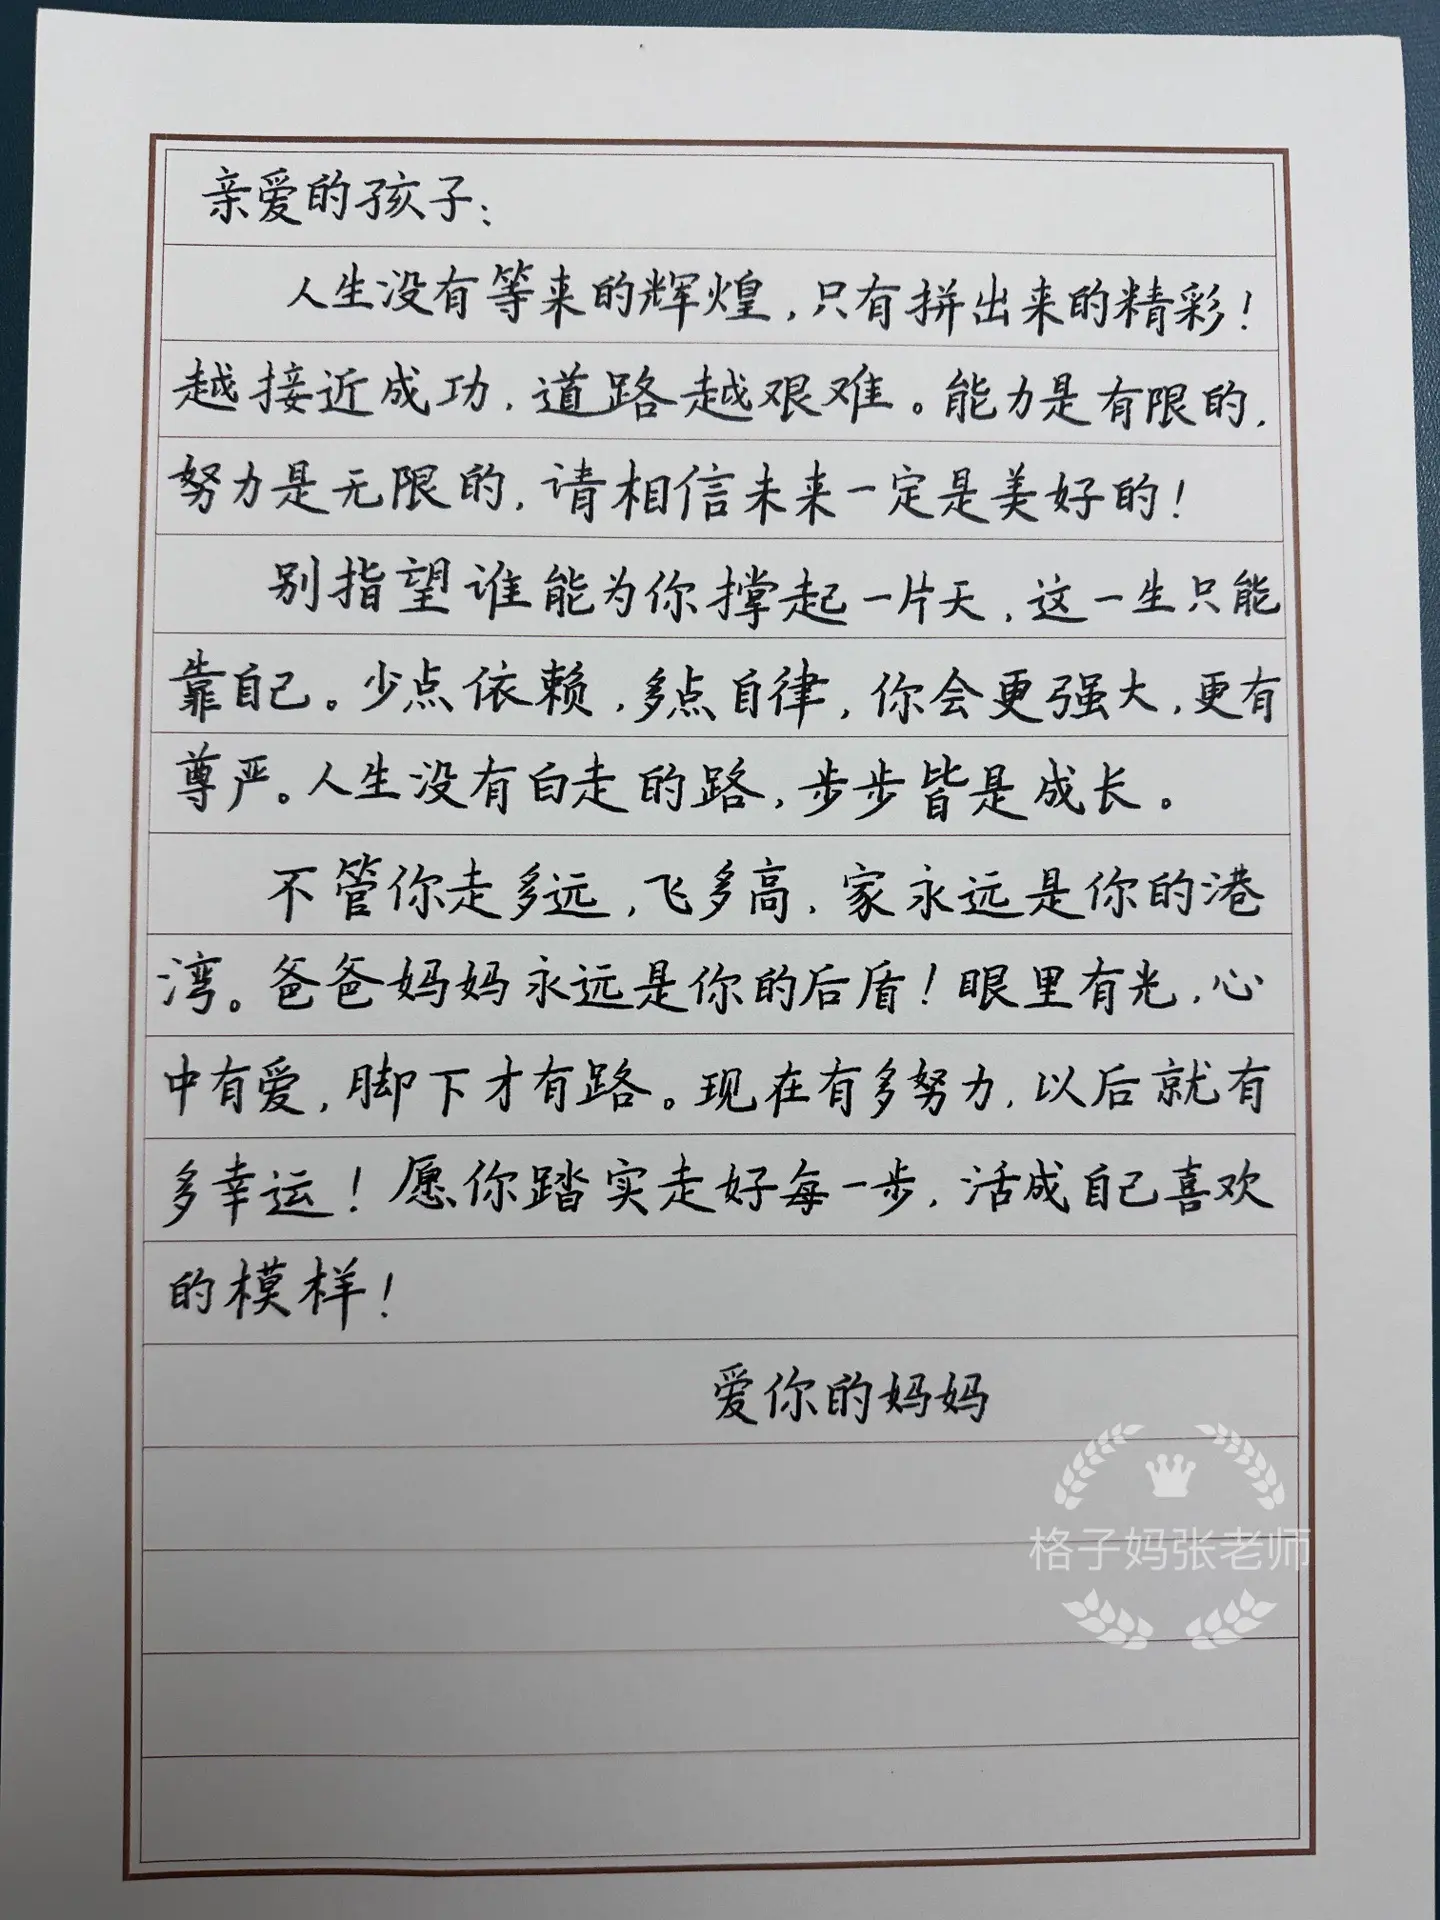 亲爱的孩子：
人生没有等来的辉煌，只有拼出来的精彩！
越接近成功，道路越艰难。能力是有限的，
努力是无限的，请相信未来一定是美好的！
别指望谁能为你撑起一片天，这一生只能
靠自己。少点依赖，多点自律，你会更强大，更有
尊严。人生没有白走的路，步步皆是成长。
不管你走多远，飞多高，家永远是你的港
湾。爸爸妈妈永远是你的后盾！眼里有光，心
中有爱，脚下才有路。现在有多努力，以后就有
多幸运！愿你踏实走好每一步，活成自己喜欢
的模样！
爱你的妈妈
格子妈张老师